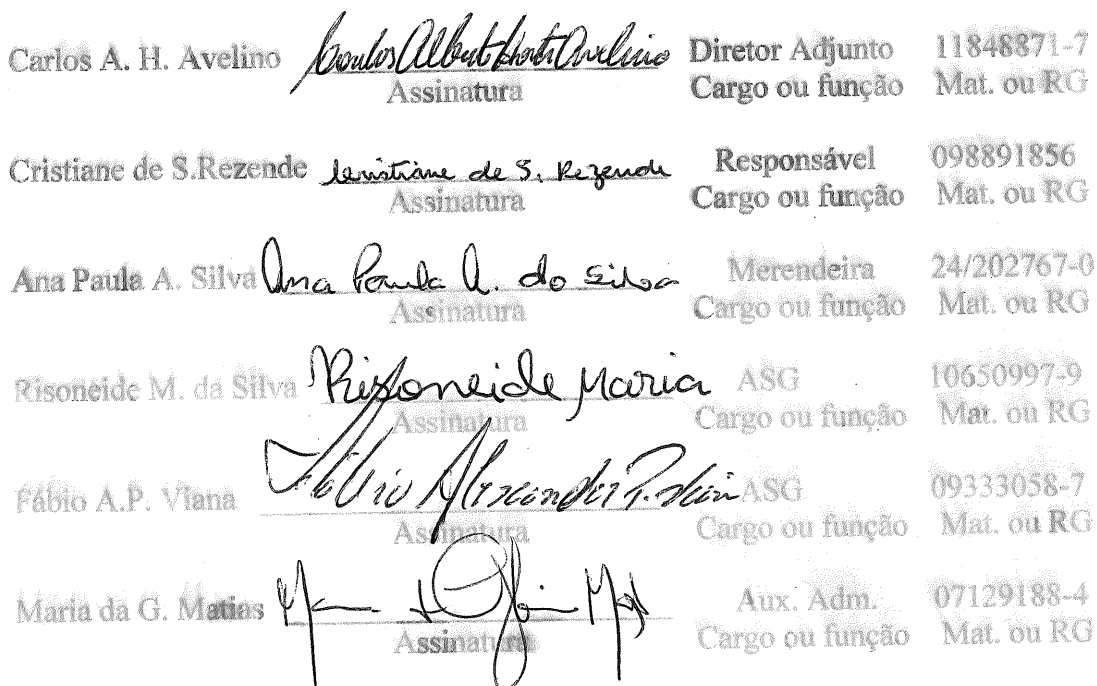 Carlos A. H. Avelino Carlos Alberto Horta Avelino Diretor Adjunto 11848871-7
Assinatura Cargo ou função Mat. ou RG
Cristiane de S.Rezende Cristiane de S. Rezende Responsável 098891856
Assinatura Cargo ou função Mat. ou RG
Ana Paula A. Silva Ana Paula A. da Silva Merendeira 24/202767-0
Assinatura Cargo ou função Mat. ou RG
Risoneide M. da Silva Risoneide Maria ASG 10650997-9
Assinatura Cargo ou função Mat. ou RG
Fábio A.P. Viana Fábio Alexander P. Viana ASG 09333058-7
Assinatura Cargo ou função Mat. ou RG
Maria da G. Matias Aux. Adm. 07129188-4
Assinatura Cargo ou função Mat. ou RG